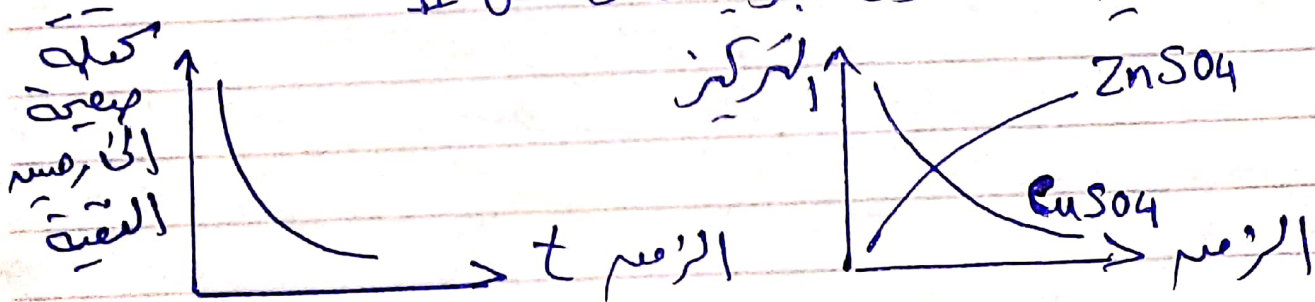 كتلة
صفيحة
الخارصين
النقية
الزمن t
التركيز
ZnSO4
CuSO4
الزمن